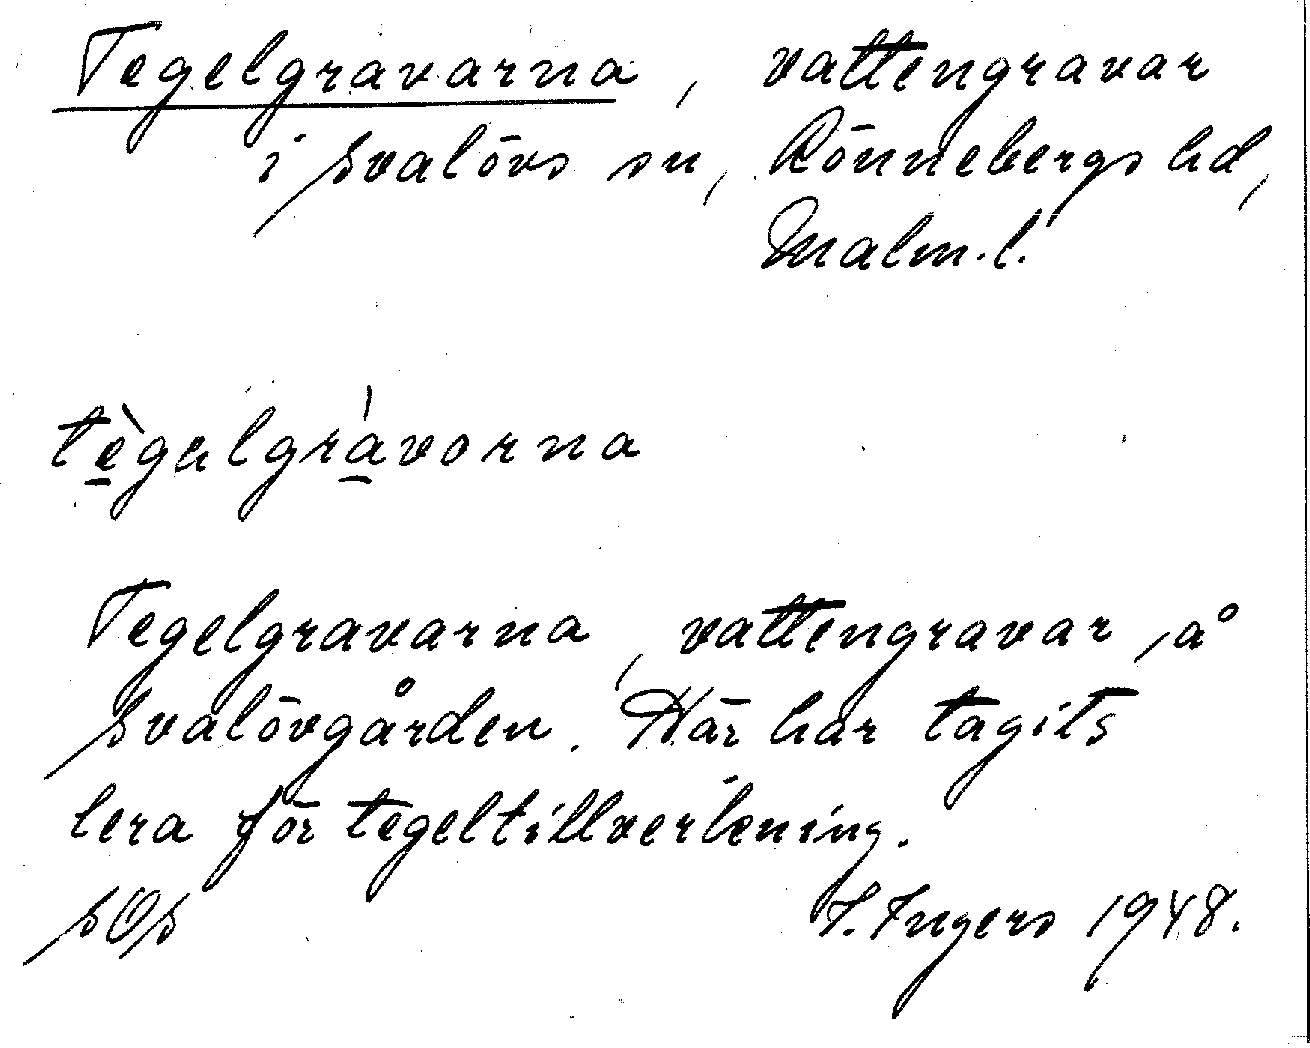 Tegelgravarna, vattengravar
i Svalövs sn, Rönnebergs hd,
Malm.l.
tè̱gal̍grá̱vorna
Tegelgravarna, vattengravar å
Svalövgården. Här har tagits
lera för tegeltillverkning.
SOS I. Ingers 1948.